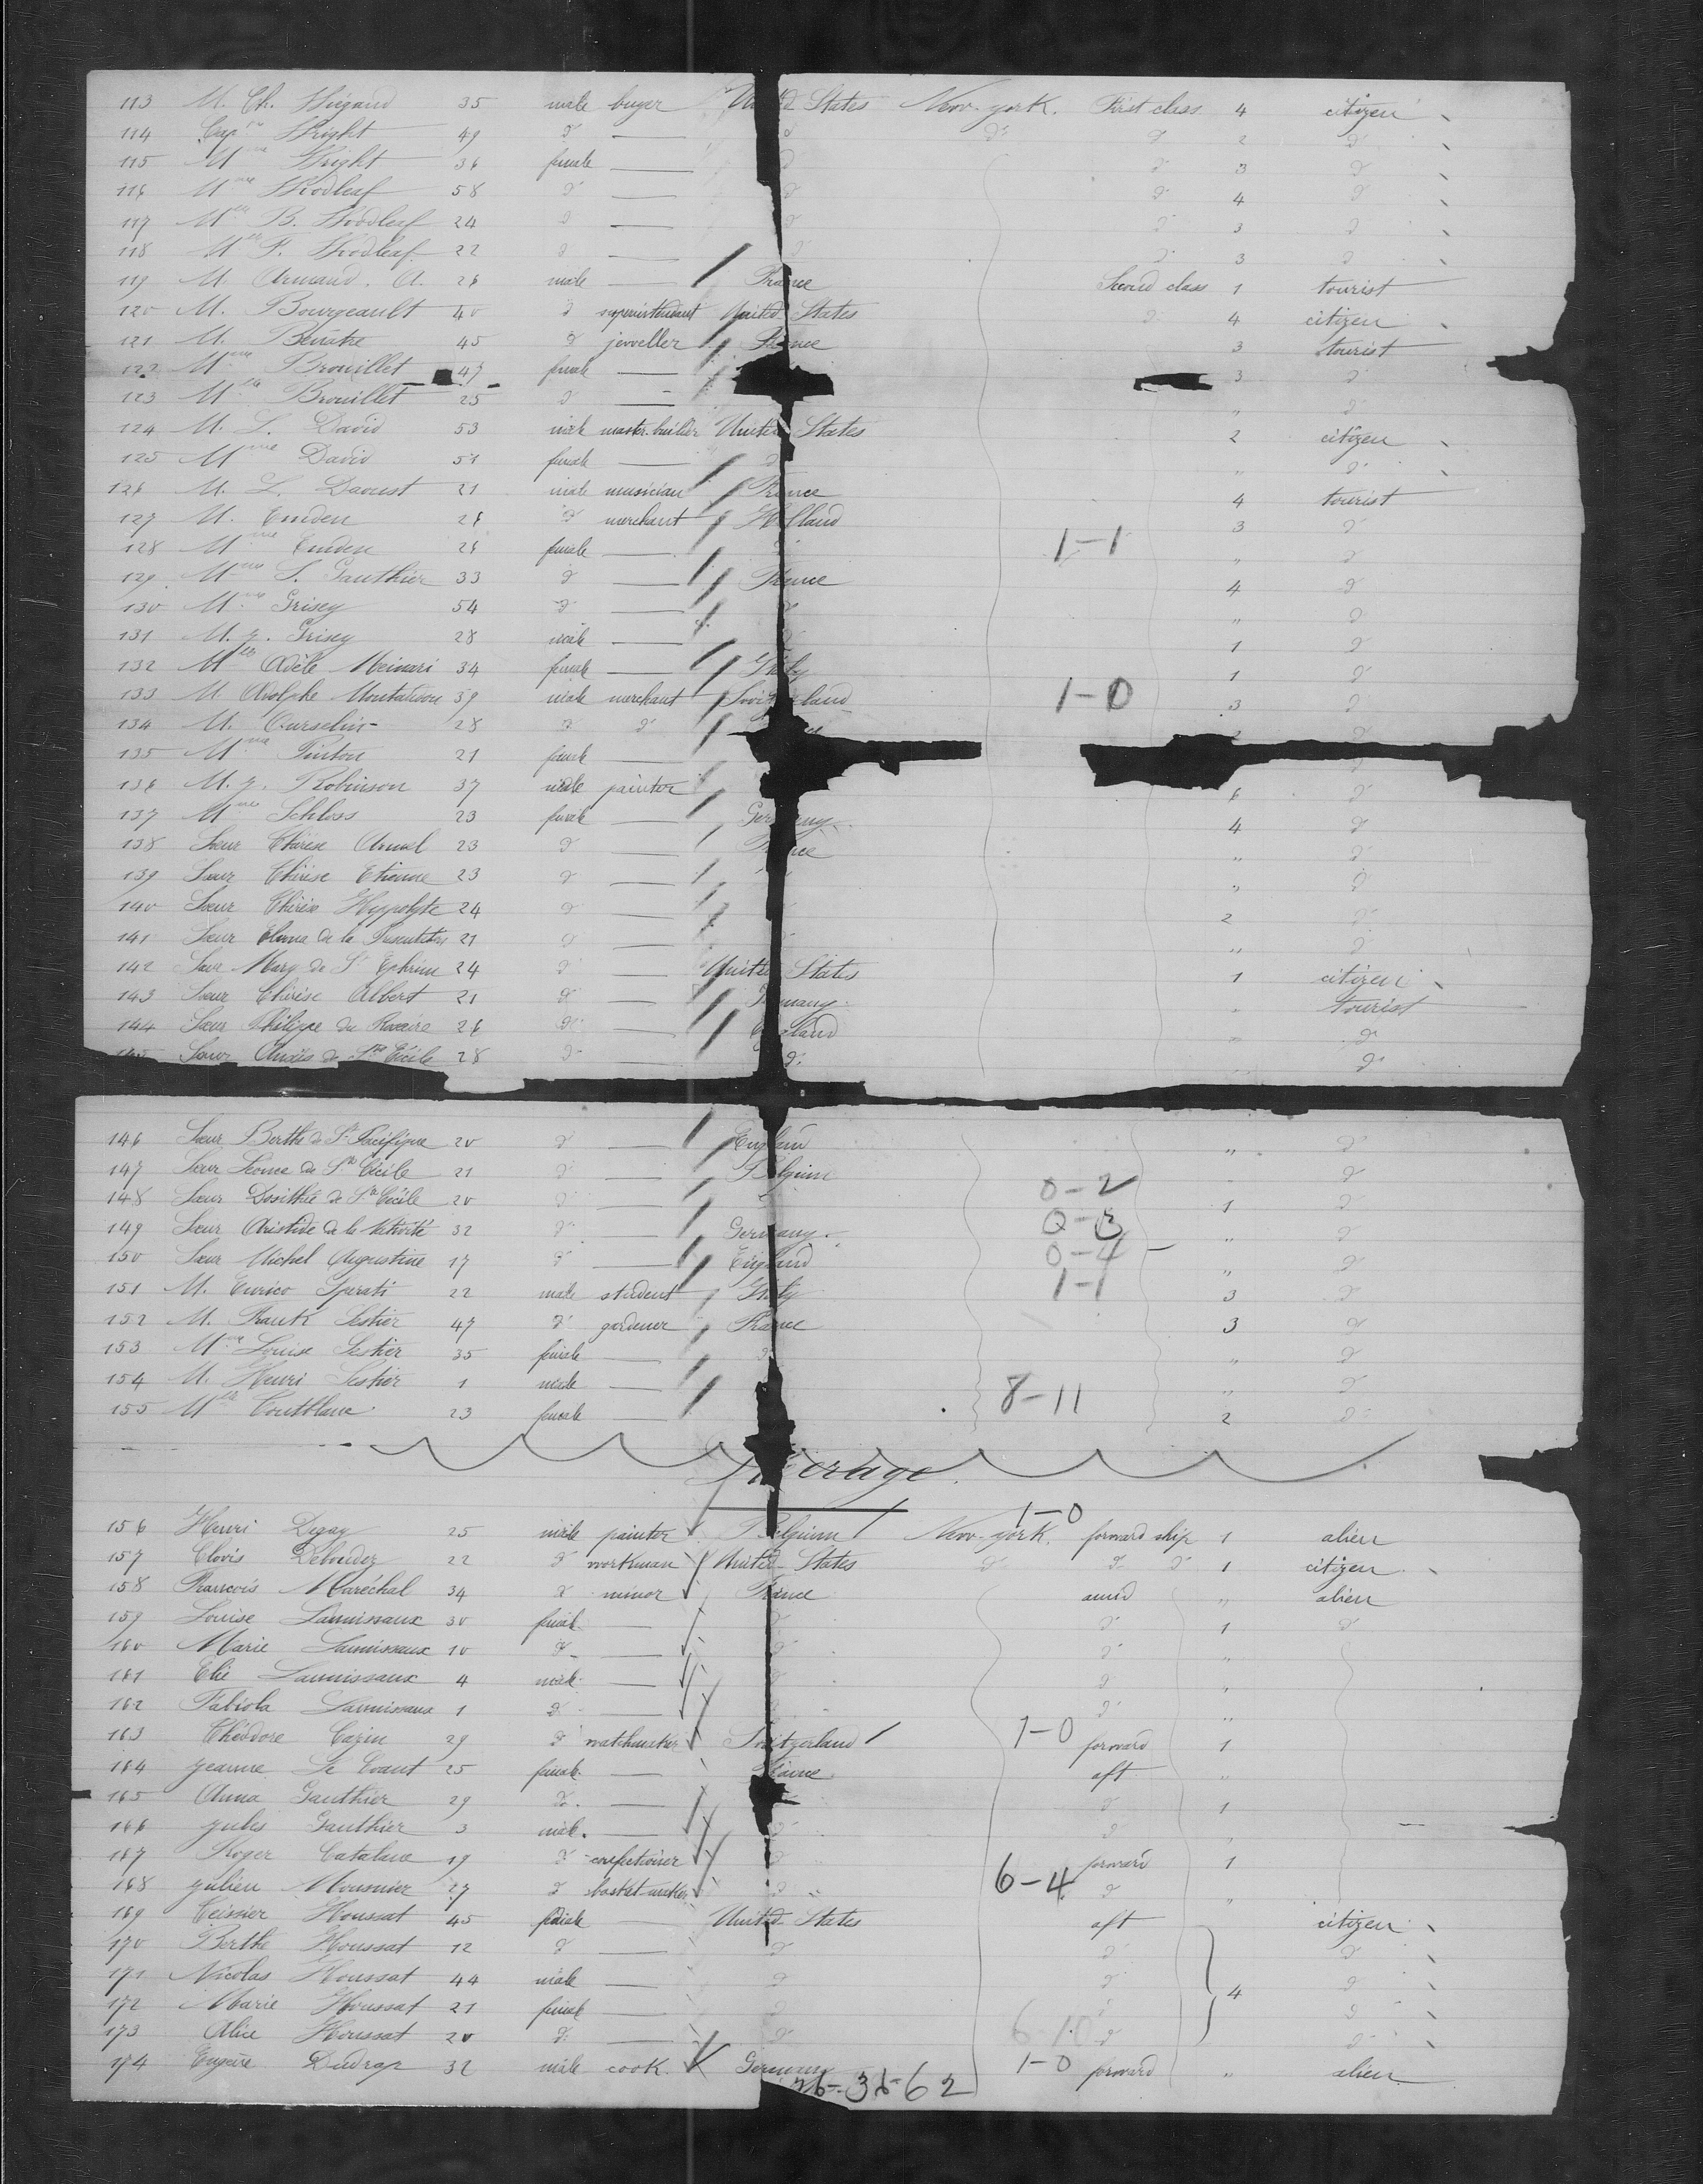 113 M. Ch. Wiegand 35 male buyer United States New-york. First class 4 citizen
114 Cap. Wright 49 d° — d° d° d° 2 d°
115 Mme Wright 36 female — d° d° 3 d°
116 Mme Woodleaf 58 d° — d° d° 4 d°
117 Mlle B. Woodleaf 24 d° — d° d° 3 d°
118 Mlle F. Woodleaf 22 d° — d° d° 3 d°
119 M. Armand. A. 26 male — France Second class 1 tourist
120 M. Bourgeault 40 d° superintendant United States d° 4 citizen
121 M. 45 d° jeweller France 3 tourist
122 Mme Brouillet 47 female — 3 d°
123 Mlle Brouillet 25 d° — " d°
124 M. L. David 53 male master-builder United States 2 citizen
125 Mme David 51 female — d° " d°
126 M. L. Daoust 21 male musician France 4 tourist
127 M. Emden 26 d° merchant Holland 3 d°
128 Mme Emden 26 female — 1-1 " d°
129 Mme S. Gauthier 33 d° — France 4 d°
130 Mme Grisey 54 d° — d° " d°
131 M. J. Grisey 28 male — 1 d°
132 Mlle Adèle Meinari 34 female — Italy 1 d°
133 M. Adolphe 39 male merchant Switzerland 1-0 3 d°
134 M. Curselin 28 d° d° 2 d°
135 Mme Pinton 21 female — d°
136 M. J. Robinson 37 male painter 6 d°
137 Mme Schloss 23 female — Germany 4 d°
138 Sœur Thérèse Armel 23 d° — France " d°
139 Sœur Thérèse Etienne 23 d° — " d°
140 Sœur Thérèse Hyppolyte 24 d° — 2 d°
141 Sœur de la 21 d° — " d°
142 Sœur Mary de St Ephrem 24 d° — United States 1 citizen
143 Sœur Thérèse Albert 21 d° — Germany " tourist
144 Sœur Philippe du Rosaire 26 d° — " d°
145 Sœur de Ste Cécile 28 d° — d° " d°
146 Sœur Berthe de St Pacifique 20 d° — England " d°
147 Sœur Léonce de Ste Cécile 21 d° — Belgium d°
148 Sœur Dosithée de Ste Cécile 20 d° — 0-2 1 d°
149 Sœur Aristide de la Nativité 32 d° — Germany 0-3 " d°
150 Sœur Michel Augustine 17 d° — England 0-4 " d°
151 M. Enrico Sperati 22 male student Italy 1-1 3 d°
152 M. Frank Sestier 47 d° gardener France 3 d°
153 Mme Louise Sestier 35 female — d° " d°
154 M. Henri Sestier 1 male — " d°
155 Mlle 23 female — 8-11 2 d°
Steerage.
1-0
156 Henri Degay 25 male painter Belgium New-york. forward ship 1 alien
157 Clovis Deboudez 22 d° workman United States d° d° d° 1 citizen
158 Francois Maréchal 34 d° minor France amid " alien
159 Louise Lannissaux 30 female — d° d° 1 d°
160 Marie Lannissaux 10 d° — d° d° "
161 Elie Lannissaux 4 male — d° d° "
162 Fabiola Lannissaux 1 d° — d° "
163 Théodore Cazin 29 d° watchmaker Switzerland 1-0 forward 1
164 Jeanne Le Coant 25 female — France aft "
165 Anna Gauthier 29 d° — d° 1
166 Jules Gauthier 3 male — d° d° "
167 Roger Catalane 19 d° confectioner d° forward 1
168 Julien Mousnier 27 d° basket-maker d° 6-4 d° "
169 Teissier Houssat 45 female — United States aft citizen
170 Berthe Houssat 12 d° — d° d° d°
171 Nicolas Houssat 44 male — d° d° 4 d°
172 Marie Houssat 21 female — d° d° d°
173 Alice Houssat 20 d° — d° 6-10 d° d°
174 Dudrap 32 male cook Germany 1-0 forward " alien
26-36-62